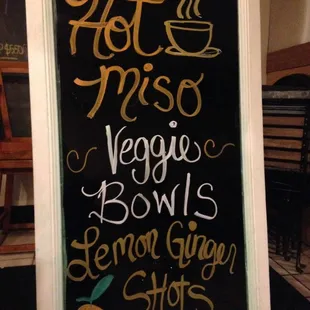 Hot
Miso
Veggie
Bowls
Lemon Ginger
Shots